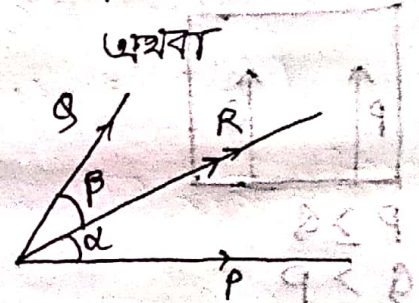 অথবা
Q
R
β
α
P